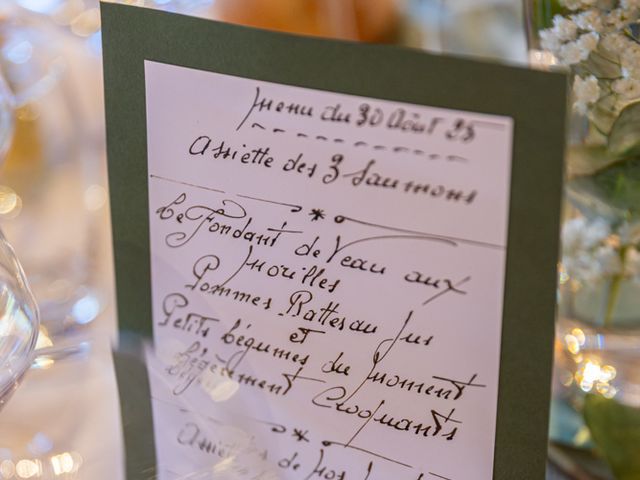 Menu du 30 Août 25
Assiette des 3 Saumons
Le Fondant de Veau aux
Morilles
Pommes Rattes au Jus
et
Petits Légumes du Moment
Légèrement Croquants
de nos